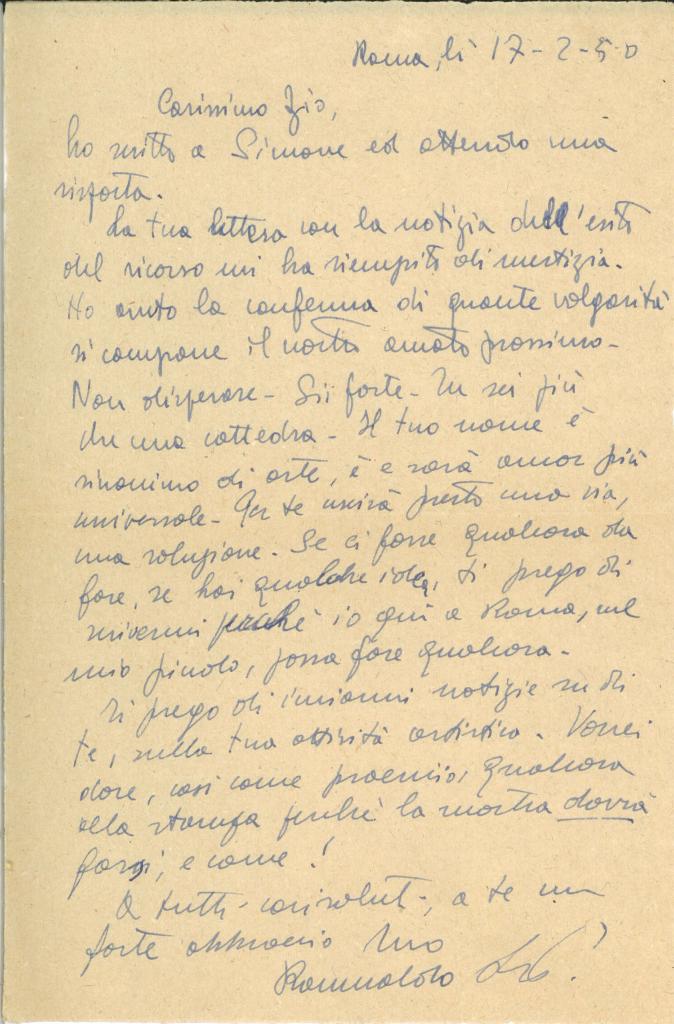 Roma, li 17-2-50
Carissimo Zio,
ho scritto a Simone ed attendo una
risposta.
La tua lettera con la notizia dell'esito
del ricorso mi ha riempito di mestizia.
Ho avuto la conferma di quante volgarità
si compone il nostro amato prossimo-
Non disperare- Sii forte- Tu sei più
che una cattedra- Il tuo nome è
sinonimo di arte, è e sarà ancor più
universale- Per te uscirà presto una via,
una soluzione. Se ci fosse qualcosa da
fare, se hai qualche idea, ti prego di
scrivermi perché io qui a Roma, nel
mio piccolo, possa fare qualcosa-
Ti prego di inviarmi notizie su di
te, sulla tua attività artistica. Vorrei
dare, così come proemio, qualcosa
alla stampa perché la mostra dovrà
farsi, e come!
A tutti cari saluti, a te un
forte abbraccio tuo
Romualdo